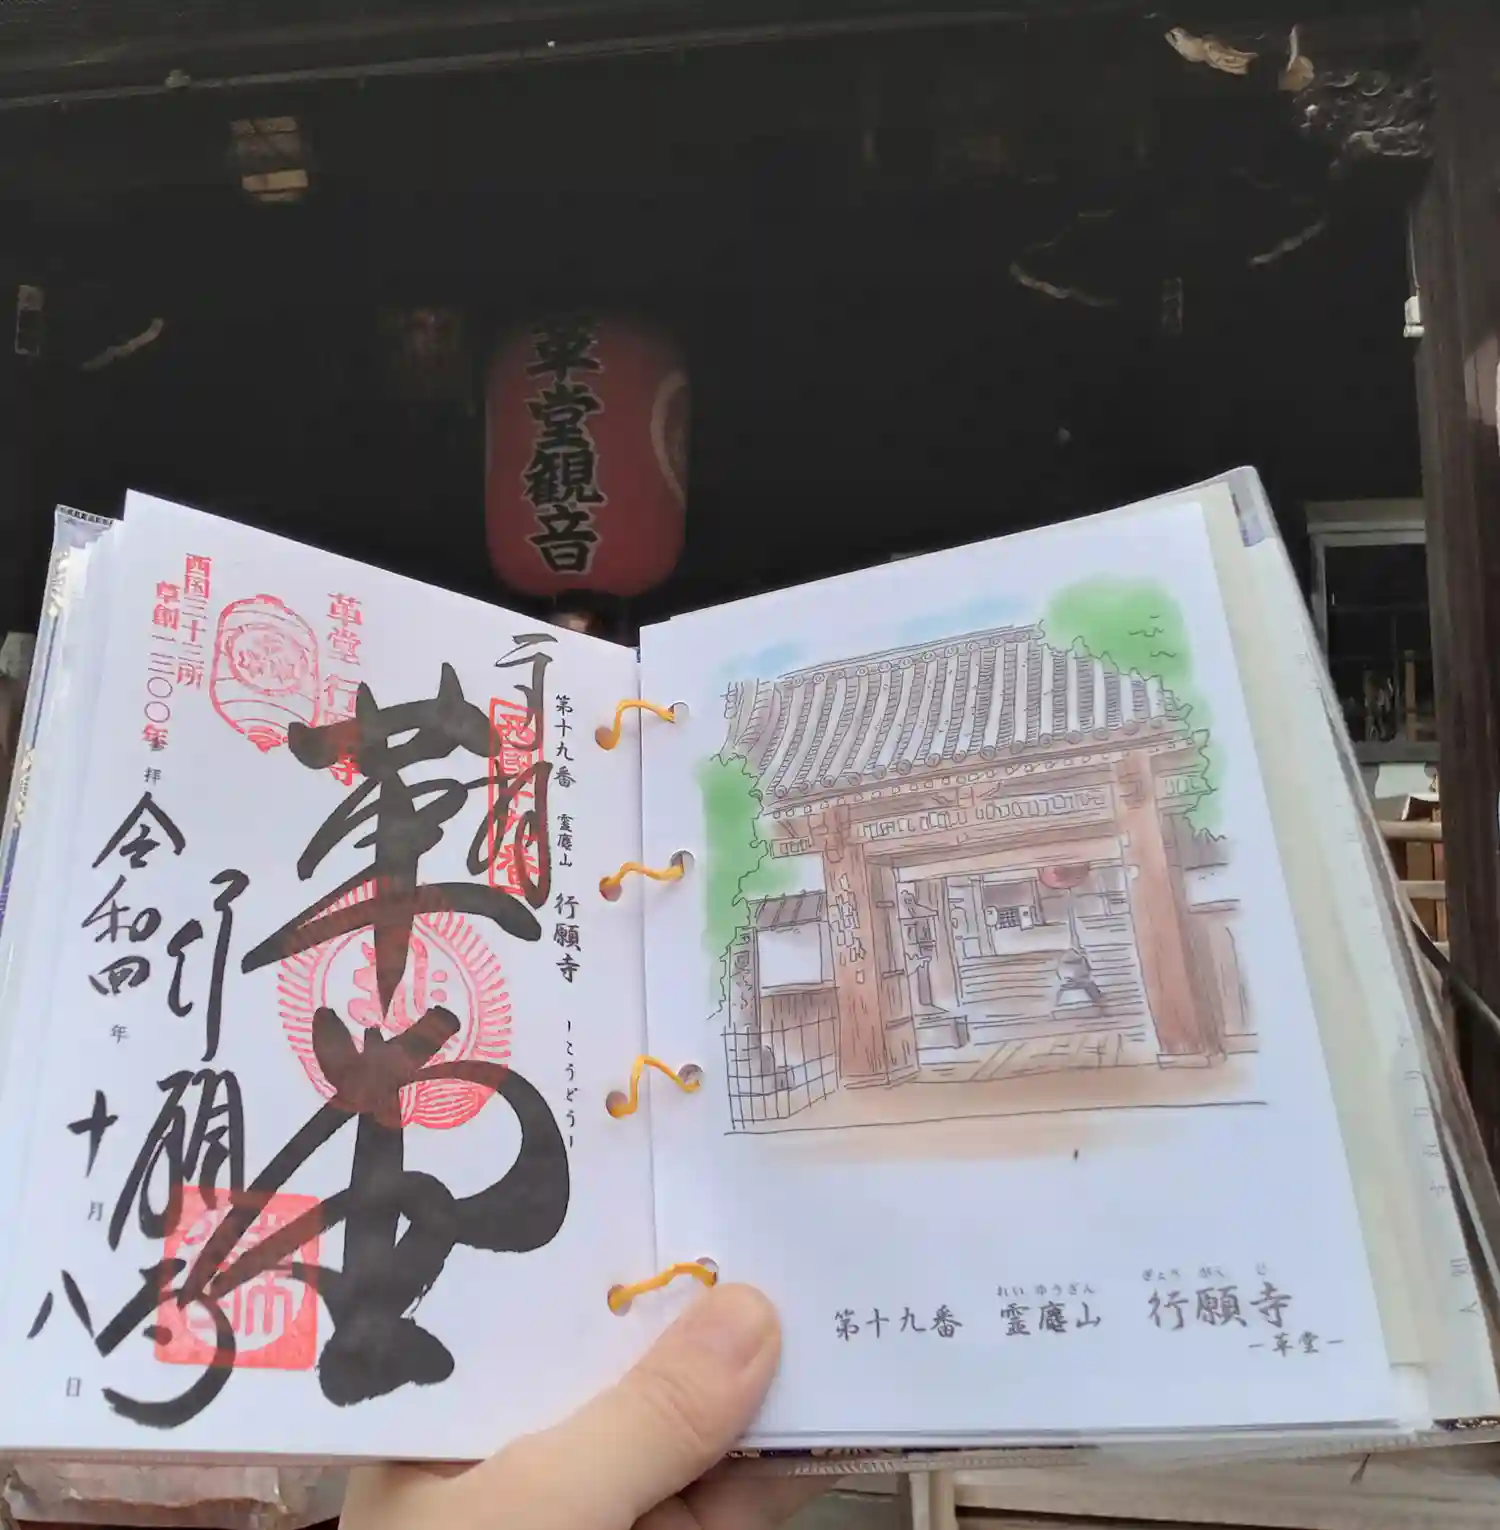 革堂観音
第十九番 霊麀山 行願寺 ーこうどうー
革堂
革堂 行願寺
行願寺
西国三十三所
草創一三〇〇年
拝
令和四年十月八日
れいゆうざん ぎょうがんじ
第十九番 霊麀山 行願寺
ー革堂ー